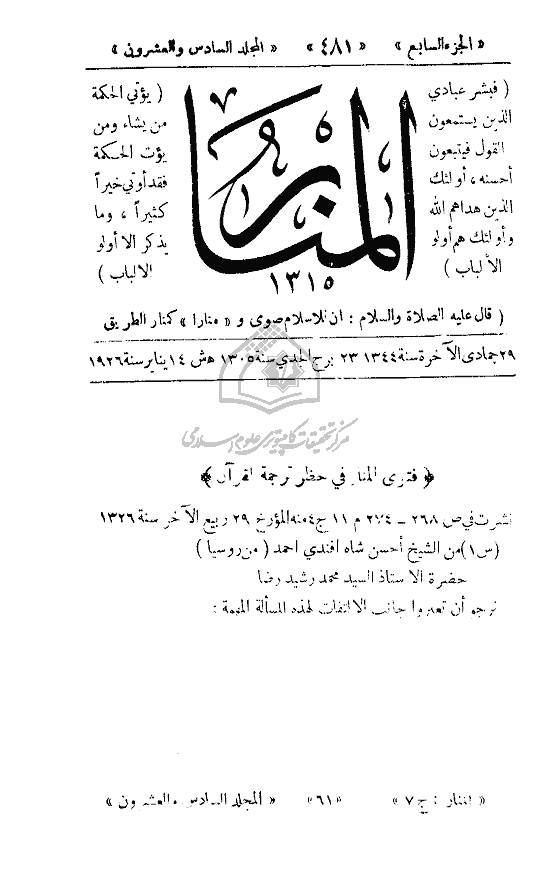 « الجزء السابع » « ٤٨١ » « المجلد السادس والعشرون »
( فبشر عبادي
الذين يستمعون
القول فيتبعون
أحسنه ، أولئك
الذين هداهم الله
وأولئك هم أولو
الألباب )
المنار
١٣١٥
( يؤتي الحكمة
من يشاء ومن
يؤت الحكمة
فقد أوتي خيراً
كثيراً ، وما
يذكر الا أولو
الالباب )
( قال عليه الصلاة والسلام : ان للاسلام صوى و « منارا » كمنار الطريق
٢٩ جمادى الآخرة سنة ١٣٤٤ ٢٣ برج الجدي سنة ١٣٠٥ هش ١٤ يناير سنة ١٩٢٦
مركز تحقيقات كامپيوترى علوم اسلامى
﴿ فتوى المنار في حظر ترجمة القرآن ﴾
نشرت في ص ٢٦٨ – ٢٧٤ م ١١ ج ٤ منه المؤرخ ٢٩ ربيع الآخر سنة ١٣٢٦
(س١) من الشيخ أحسن شاه افندي احمد ( من روسيا )
حضرة الاستاذ السيد محمد رشيد رضا
نرجو أن تعيروا جانب الالتفات لهذه المسألة المهمة :
« المنار : ج ٧ » « ٦١ » « المجلد السادس والعشرون »